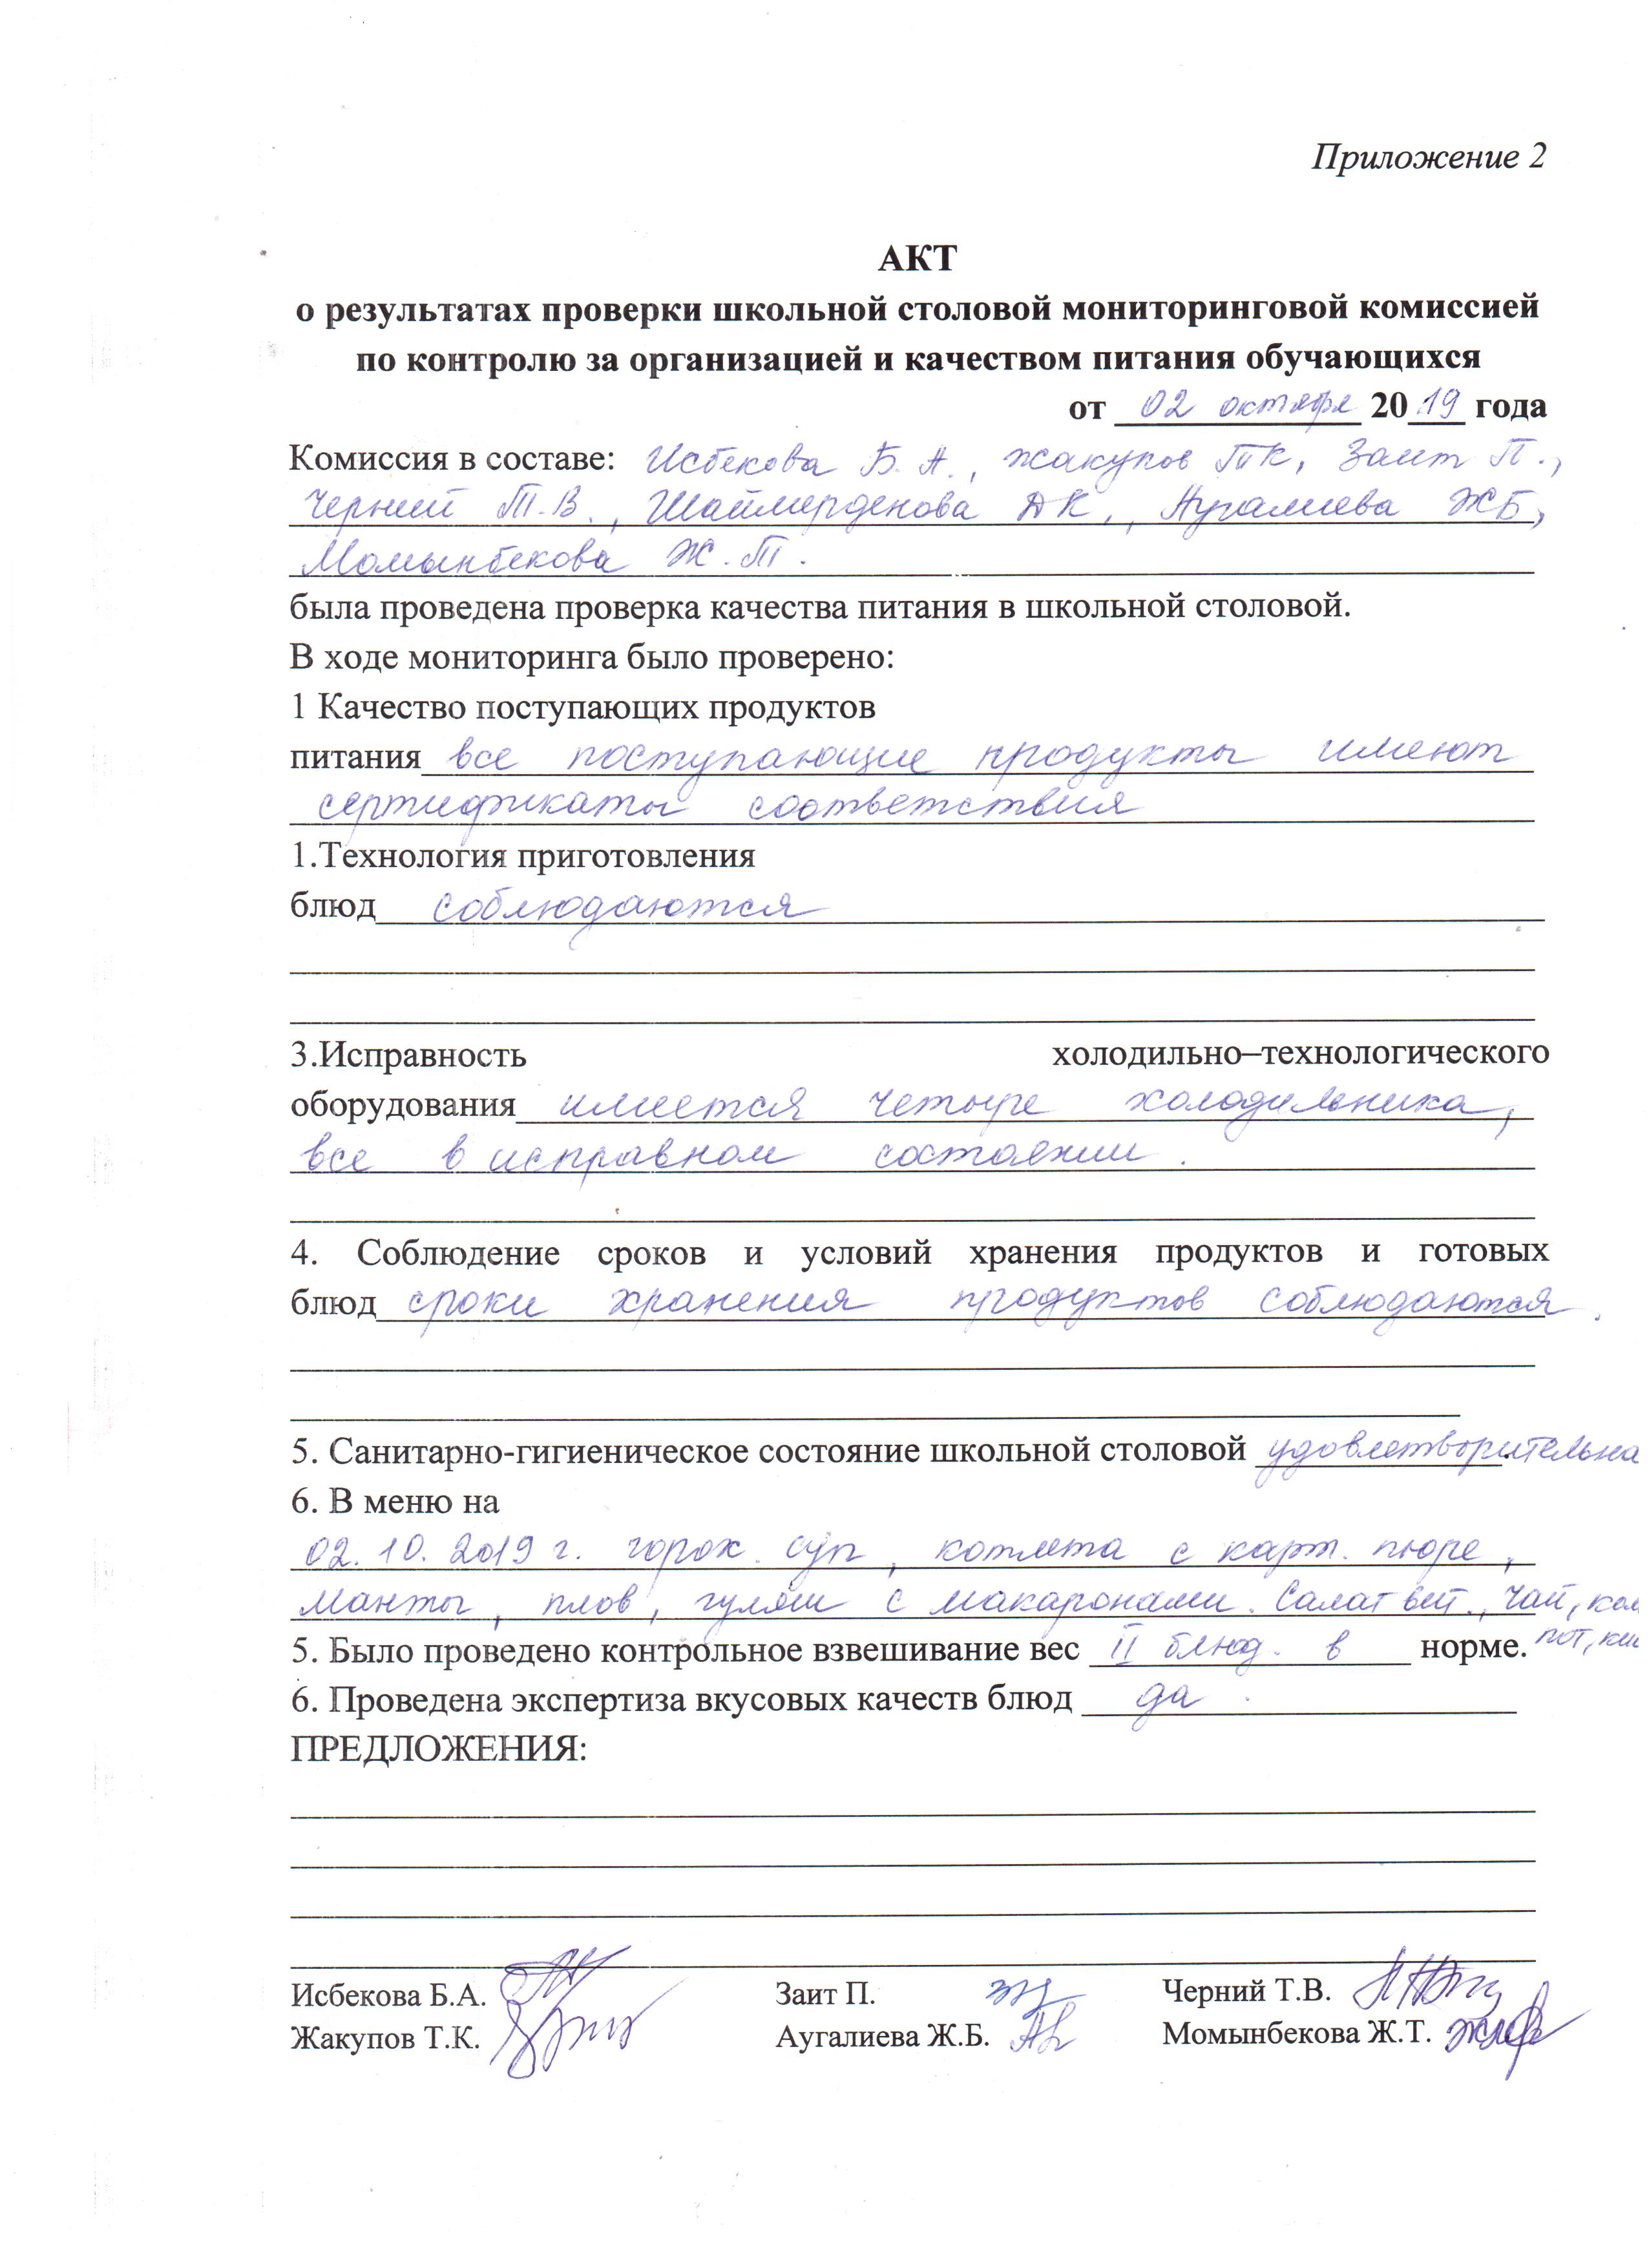 Приложение 2
АКТ
о результатах проверки школьной столовой мониторинговой комиссией
по контролю за организацией и качеством питания обучающихся
от 02 октября 2019 года
Комиссия в составе: Исбекова Б.А., Жакупов ТК, Заит П.,
Черний Т.В., Шаймерденова ДК., Аугалиева ЖБ,
Момынбекова Ж.Т.
была проведена проверка качества питания в школьной столовой.
В ходе мониторинга было проверено:
1 Качество поступающих продуктов
питания все поступающие продукты имеют
сертификаты соответствия
1.Технология приготовления
блюд соблюдаются
3.Исправность холодильно–технологического
оборудования имеется четыре холодильника,
все в исправном состоянии.
4. Соблюдение сроков и условий хранения продуктов и готовых
блюд сроки хранения продуктов соблюдаются.
5. Санитарно-гигиеническое состояние школьной столовой удовлетворительна
6. В меню на
02.10.2019 г. горох. суп, котлета с карт. пюре,
манты, плов, гуляш с макаронами. Салат вит., чай, ком
пот, кис
5. Было проведено контрольное взвешивание вес II блюд. в норме.
6. Проведена экспертиза вкусовых качеств блюд да
ПРЕДЛОЖЕНИЯ:
Исбекова Б.А. Заит П. Черний Т.В.
Жакупов Т.К. Аугалиева Ж.Б. Момынбекова Ж.Т.